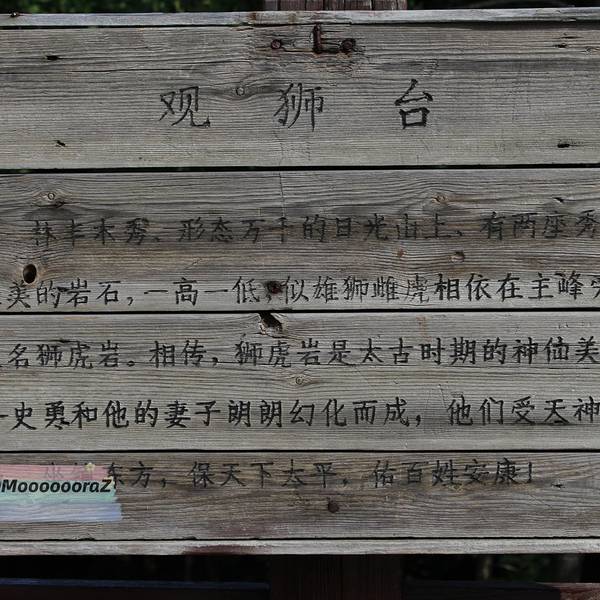 观狮台
林丰木秀、形态万千的日光山上、有两座秀
美的岩石,一高一低,似雄狮雌虎相依在主峰
名狮虎岩。相传,狮虎岩是太古时期的神仙美
史勇和他的妻子朗朗幻化而成,他们受天神
东方,保天下太平,佑百姓安康!
MoooooooraZ